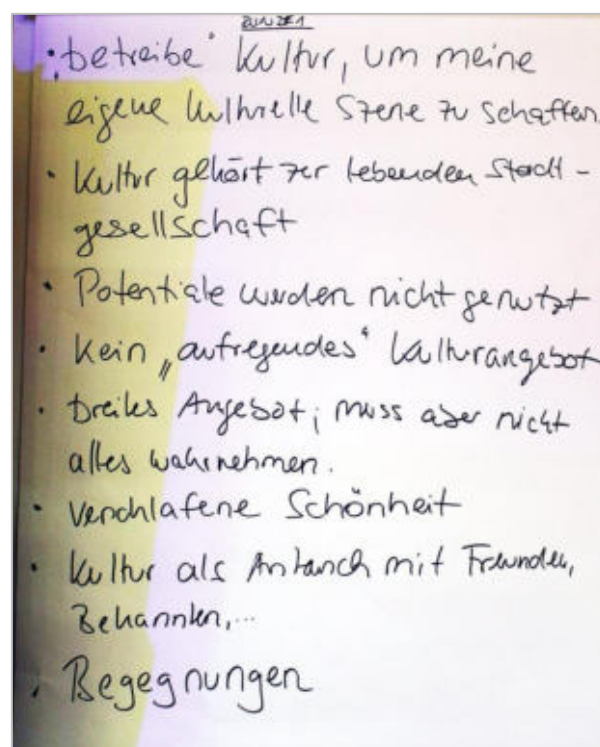 • „betreibe“ Kultur, um meine
eigene kulturelle Szene zu schaffen.
• Kultur gehört zur lebenden Stadt-
gesellschaft
• Potentiale werden nicht genutzt
• Kein „aufregendes“ Kulturangebot
• Breites Angebot; muss aber nicht
alles wahrnehmen.
• verschlafene Schönheit
• Kultur als Austausch mit Freunden,
Bekannten,...
• Begegnungen